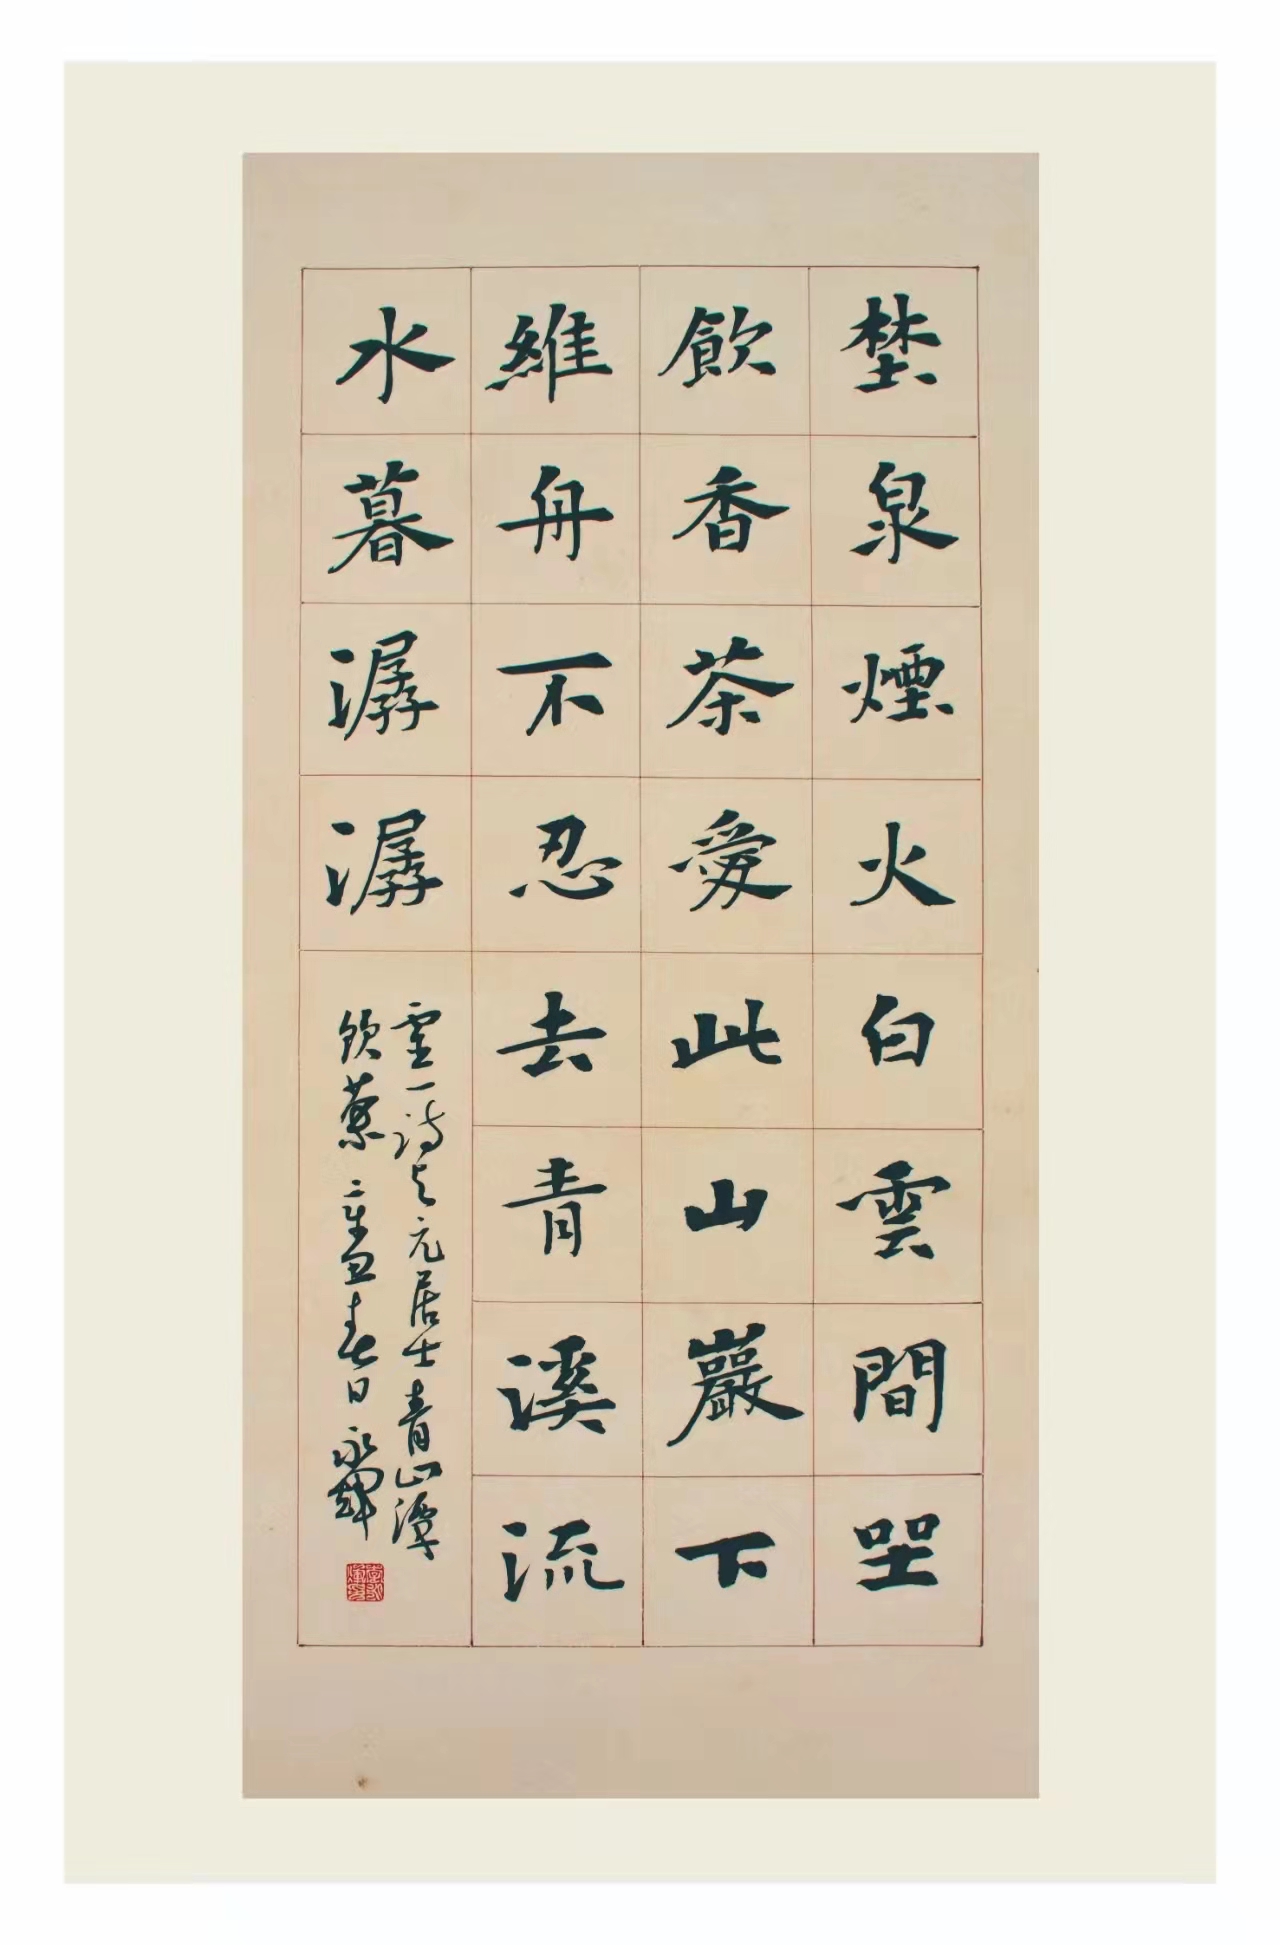 埜泉煙火白雲間坐
飲香茶愛此山巖下
維舟不忍去青溪流
水暮潺潺
靈一詩与元居士青山潭
飲茶 辛丑春日永輝